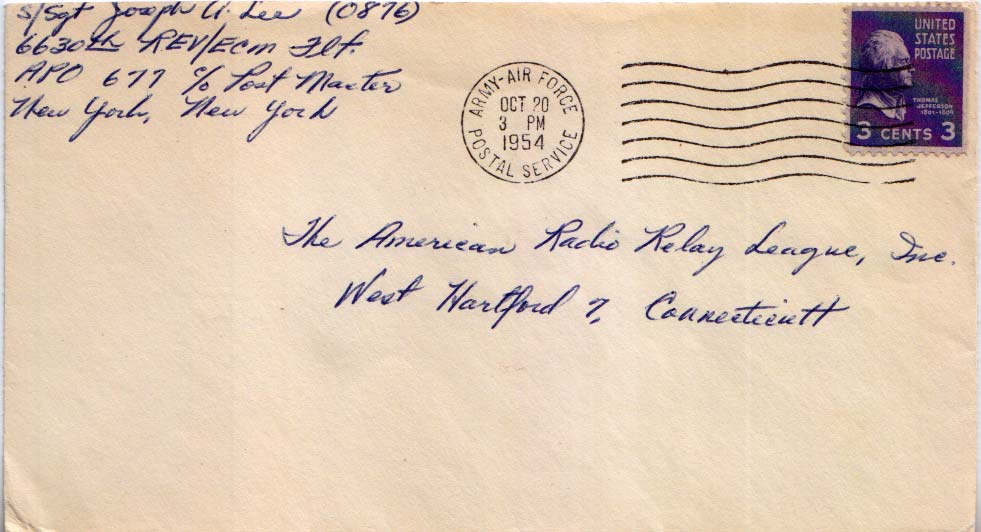 S/Sgt Joseph A. Lee (0876)
6630th REV/Ecm Flt.
APO 677 c/o Post Master
New York, New York
ARMY-AIR FORCE
OCT 20
3 PM
1954
POSTAL SERVICE
UNITED
STATES
POSTAGE
THOMAS
JEFFERSON
1801-1809
3 CENTS 3
The American Radio Relay League, Inc.
West Hartford 7, Connecticutt